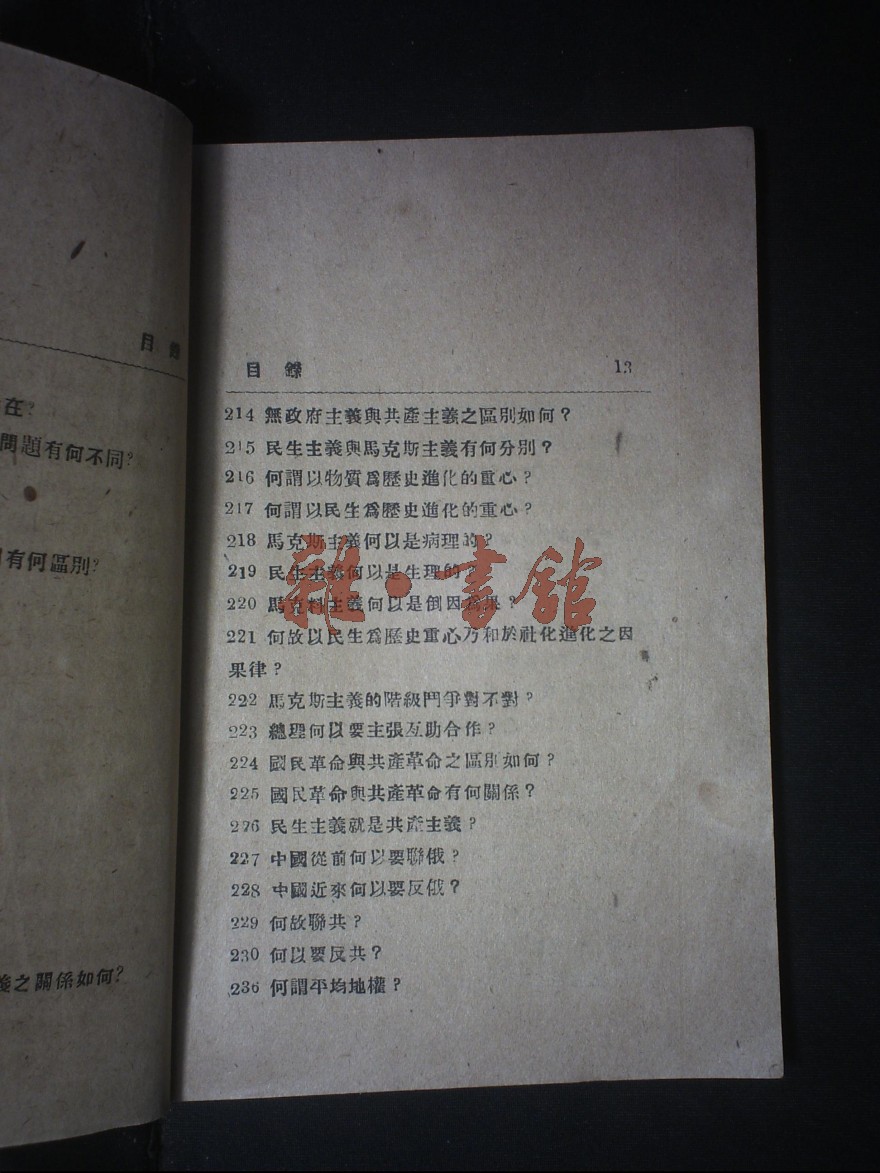 目錄
在?
問題有何不同?
有何區別?
之關係如何?
目錄 13
214 無政府主義與共產主義之區別如何？
215 民生主義與馬克斯主義有何分別？
216 何謂以物質爲歷史進化的重心？
217 何謂以民生爲歷史進化的重心？
218 馬克斯主義何以是病理的？
219 民生主義何以是生理的？
220 馬克料主義何以是倒因爲果？
221 何故以民生爲歷史重心乃和於社化進化之因
果律？
222 馬克斯主義的階級鬥爭對不對？
223 總理何以要主張互助合作？
224 國民革命與共產革命之區別如何？
225 國民革命與共產革命有何關係？
226 民生主義就是共產主義？
227 中國從前何以要聯俄？
228 中國近來何以要反俄？
229 何故聯共？
230 何以要反共？
236 何謂平均地權？
雜·書館